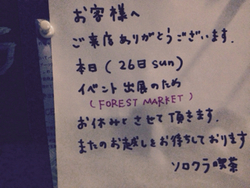 お客様へ
ご来店ありがとうございます.
本日(26日sun)
イベント出展のため
(FOREST MARKET)
お休みとさせて頂きます.
またのお越しをお待ちしております
ソロクラ喫茶